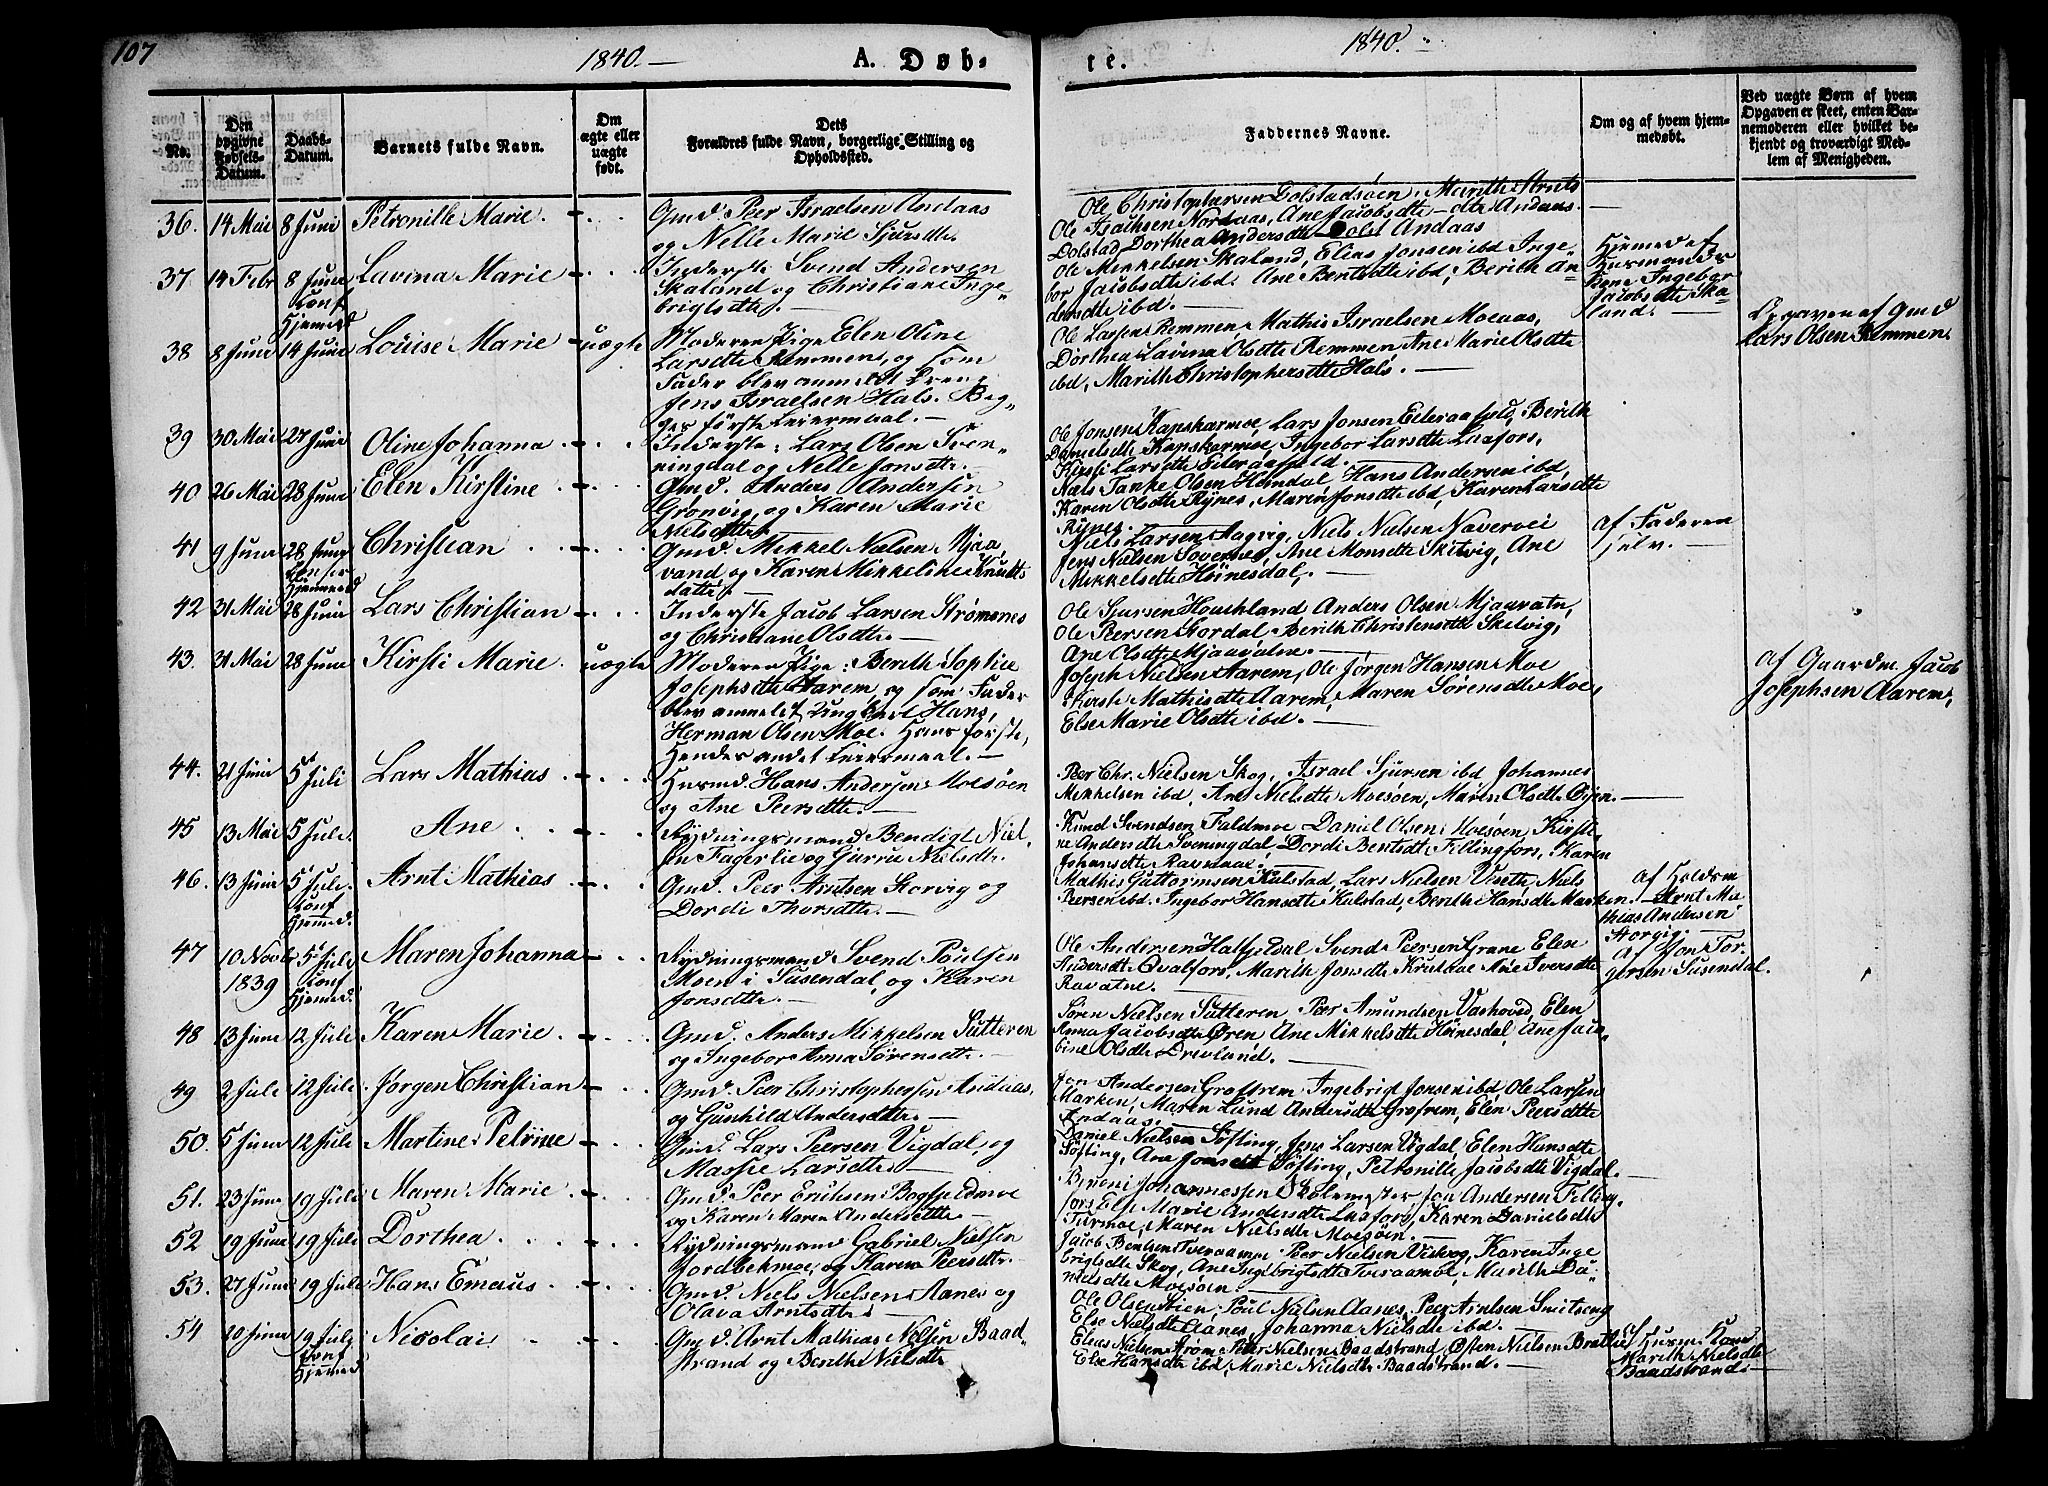 107
1840.
A. Døb-
te.
1840.
No.
Den opgivne Fødsels-Datum.
Daabs-Datum.
Barnets fulde Navn.
Om ægte eller uægte født.
Dets Forældres fulde Navn, borgerlige Stilling og Opholdssted.
Faddernes Navne.
Om og af hvem hjemmedøbt.
Ved uægte Børn af hvem Opgaven er skeet, enten Barnemoderen eller hvilket bekjendt og troværdigt Medlem af Menigheden.
36. 14 Mai 8 Juni Petronille Marie.
Gmd. Peer Israelsen Andaas
og Nelle Marie Sjursdtr.
Ole Christophersen Dolstadsøen, Marith Arnts
Ole Isachsen Nordaas, Ane Jacobsdtr - dtr Andaas.
Dolstad Dorthea Andersdtr Andaas
37 14 Febr 8 Juni Conf Hjemmed Lavina Marie
Inderste Svend Andersen
Skaland og Christiane Inge-
brigtsdtr.
Ole Mikkelsen Skaland, Elias Jonsen ibd Inge-
bor Jacobsdtr ibd. Ane Bentsdtr ibd, Berith An-
dersdtr ibd.
Hjemmed af
Husmands
Kone Ingebor
Jacobsdtr Ska-
land.
38 8 Juni 14 Juni Louise Marie uægte
Moderen Pige Elen Oline
Larsdtr Remmen, og som
Fader blev anmeldt Dreng
Jens Israelsen Hals. Beg-
ges første Leiermaal.
Ole Larsen Remmen, Mathis Israelsen Moeaas,
Dorthea Lavina Olsdtr Remmen Ane Marie Olsdtr
ibd, Marith Christophersdtr Hals.
Opgaven af Gmd
Lars Olsen Remmen.
39 30 Mai 27 Juni Oline Johanna
Inderste Lars Olsen Sven-
ningdal og Nelle Jonsdtr.
Ole Jonsen Kapskarmoe, Lars Jonsen Eiteraafjeld, Berith
Danielsdtr Kapskarmoe, Ingebor Larsdtr Laxfors,
Kirsti Larsdtr Eiteraafjeld.
40 26 Mai 28 Juni Elen Kirstine
Gmd. Anders Andersen
Grønvig, og Karen Marie
Nielsdtr.
Niels Tanke Olsen Hemdal, Hans Andersen ibd,
Karen Olsdtr Rynes, Maren Jonsdtr ibd, Karen Larsdtr
Rynes.
41 9 Juni 28 Juni Confir Hjemmed Christian
Gmd. Mikkel Nielsen Mjaa-
vand, og Karen Mikkeline Knuds
datter.
Niels Larsen Aagvig, Niels Nielsen Navervei
Jens Nielsen Sovernes, Ane Monsdtr Skitvig, Ane
Mikkelsdtr Høinesdal,
af Faderen
sjelv.
42 31 Mai 28 Juni Lars Christian
Inderste Jacob Larsen Strømnes
og Christiane Olsdtr.
Ole Sjursen Houshland Anders Olsen Mjaavatn,
Ole Peersen Stordal, Berith Christensdtr Skitvig,
Ane Olsdtr Mjaavatne.
43. 31 Mai 28 Juni Kirsti Marie. uægte
Moderen Pige: Berith Sophie
Josephsdtr Aarem, og som Fader
blev anmeldt Ungkarl Hans,
Herman Olsen Moe. Hans første,
Hendes andet Leiermaal.
Joseph Nielsen Aarem, Ole Jørgen Hansen Moe
Kirsti Mathisdtr Aarem, Maren Sørensdtr Moe,
Else Marie Olsdtr ibd.
af Gaardm Jacob
Josephsen Aarem,
44. 21 Juni 5 Juli Lars Mathias
Husmd. Hans Andersen Moesøen
og Ane Peersdtr.
Peer Chr. Nielsen Skog, Israel Sjursen ibd Johannes
Mikkelsen ibd, Ane Nielsdtr Moesøen, Maren Olsdtr Øien.
45 13 Mai 5 Juli. Ane
Rydningsmand Bendigt Niel-
sen Fagerlie og Gurru Nielsdtr.
Knud Svendsen Faldmoe Daniel Olsen Moesøen, Kirsti-
ne Andersdtr Sveningdal, Dordi Bentsdtr Fellingfors, Karen
Johansdtr Ravnaae.
46. 13 Juni 5 Juli. Conf Hjemmed. Arnt Mathias
Gmd. Peer Arntsen Storvig og
Dordi Thorsdtr.
Mathis Guttormsen Kulstad, Lars Nielsen Visette Niels
Peersen ibd. Ingebor Hansdtr Kulstad, Berith Hansdtr Marken.
af Holdsm
Arnt Ma-
thias Andersen
Storvig.
47 10 Novb 1839 5 Juli Conf Hjemmed. Maren Johanna
Rydningsmand Svend Poulsen
Moen i Susendal, og Karen
Jonsdtr.
Ole Andersen Hatfjeldal Svend Peersen Grane Elen
Andersdtr Qvalfors, Marith Jonsdtr Krutaae Ane Iversdtr
Ravatne.
Af Jon Tor-
gersen Susendal.
48 13 Juni 12 Juli Karen Marie
Gmd. Anders Mikkelsen Sutteren
og Ingebor Anna Sørensdtr.
Søren Nielsen Sutteren Peer Amundsen Vashoved, Elen
Anna Jacobsdtr Øren Ane Mikkelsdtr Høinesdal, Ane Jaco-
bine Olsdtr Drevland.
49 2 Juli 12 Juli Jørgen Christian
Gmd. Peer Christophersen Andaas,
og Gunhild Andersdtr.
Jon Andersen Groftrem, Ingebrigt Jonsen ibd, Ole Larsen
Marken, Maren Lund Andersdtr Grofrem, Elen Peersdtr
Andaas.
50. 5 Juni 12 Juli Martine Petrine
Gmd. Lars Peersen Vigdal, og
Massie Larsdtr.
Daniel Nielsen Søfting, Jens Larsen Vigdal, Elen Hansdtr
Søfting, Ane Jonsdtr Søfting, Petronille Jacobsdtr Vigdal.
51. 23 Juni 19 Juli Maren Marie
Gmd. Peer Erichsen Bogfjeldmoe
og Karen Maren Andersdtr.
Johannessen Skolemester Jon Andersen Felling-
fors, Else Marie Andersdtr Laxfors, Karen Danielsdtr
Turmoe, Maren Nielsdtr Moesøen.
52 19 Juni 19 Juli Dorthea
Rydningsmand Gabriel Nielsen
Jordbekmoe, og Karen Peersdtr.
Jacob Bentsen Tveraamoe Peer Nielsen Visvog, Karen Inge
brigtsdtr Skog, Ane Ingebrigtsdtr Tveraamoe, Marith Da-
nielsdtr Moesøen.
53. 27 Juni 19 Juli Hans Emaus
Gmd. Niels Nielsen Aanes og
Olava Arntsdtr.
Ole Olsen Stien, Poul Nielsen Aanes, Peer Arntsen Smitseng
Else Nielsdtr Aanes, Johanna Nielsdtr ibd.
54 20 Juni 19 Juli Conf Hjemmed Nicolai
Gmd. Arnt Mathias Nielsen Baad-
strand og Berith Nielsdtr
Elias Nielsen Strøm, Peter Nielsen Baadstrand, Østen Nielsen Bratlie
Else Hansdtr ibd, Marie Nielsdtr Baadstrand.
af Husm Kone
Marith Nielsdtr
Baadstrand